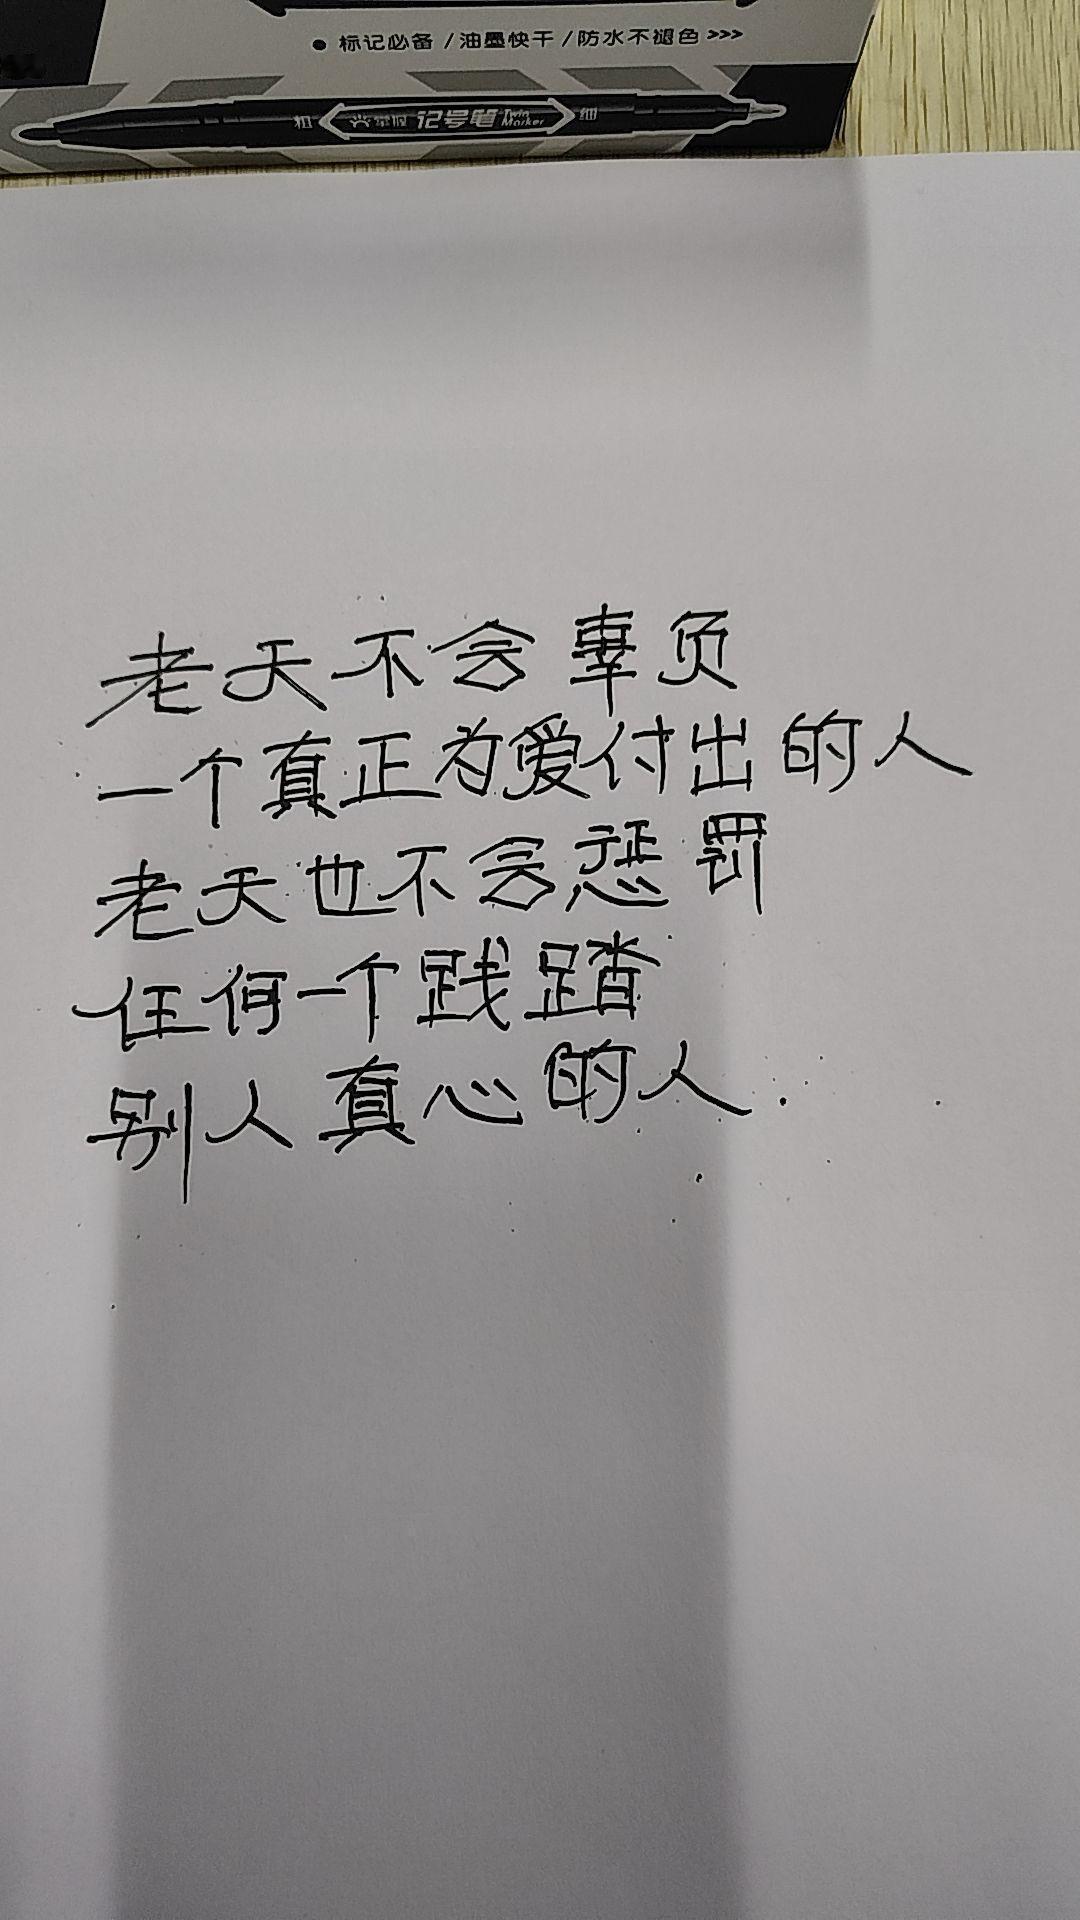 ● 标记必备 / 油墨快干 / 防水不褪色 >>>
粗 记号笔 Twin Marker 细
老天不会辜负
一个真正为爱付出的人
老天也不会惩罚
任何一个践踏
别人真心的人.